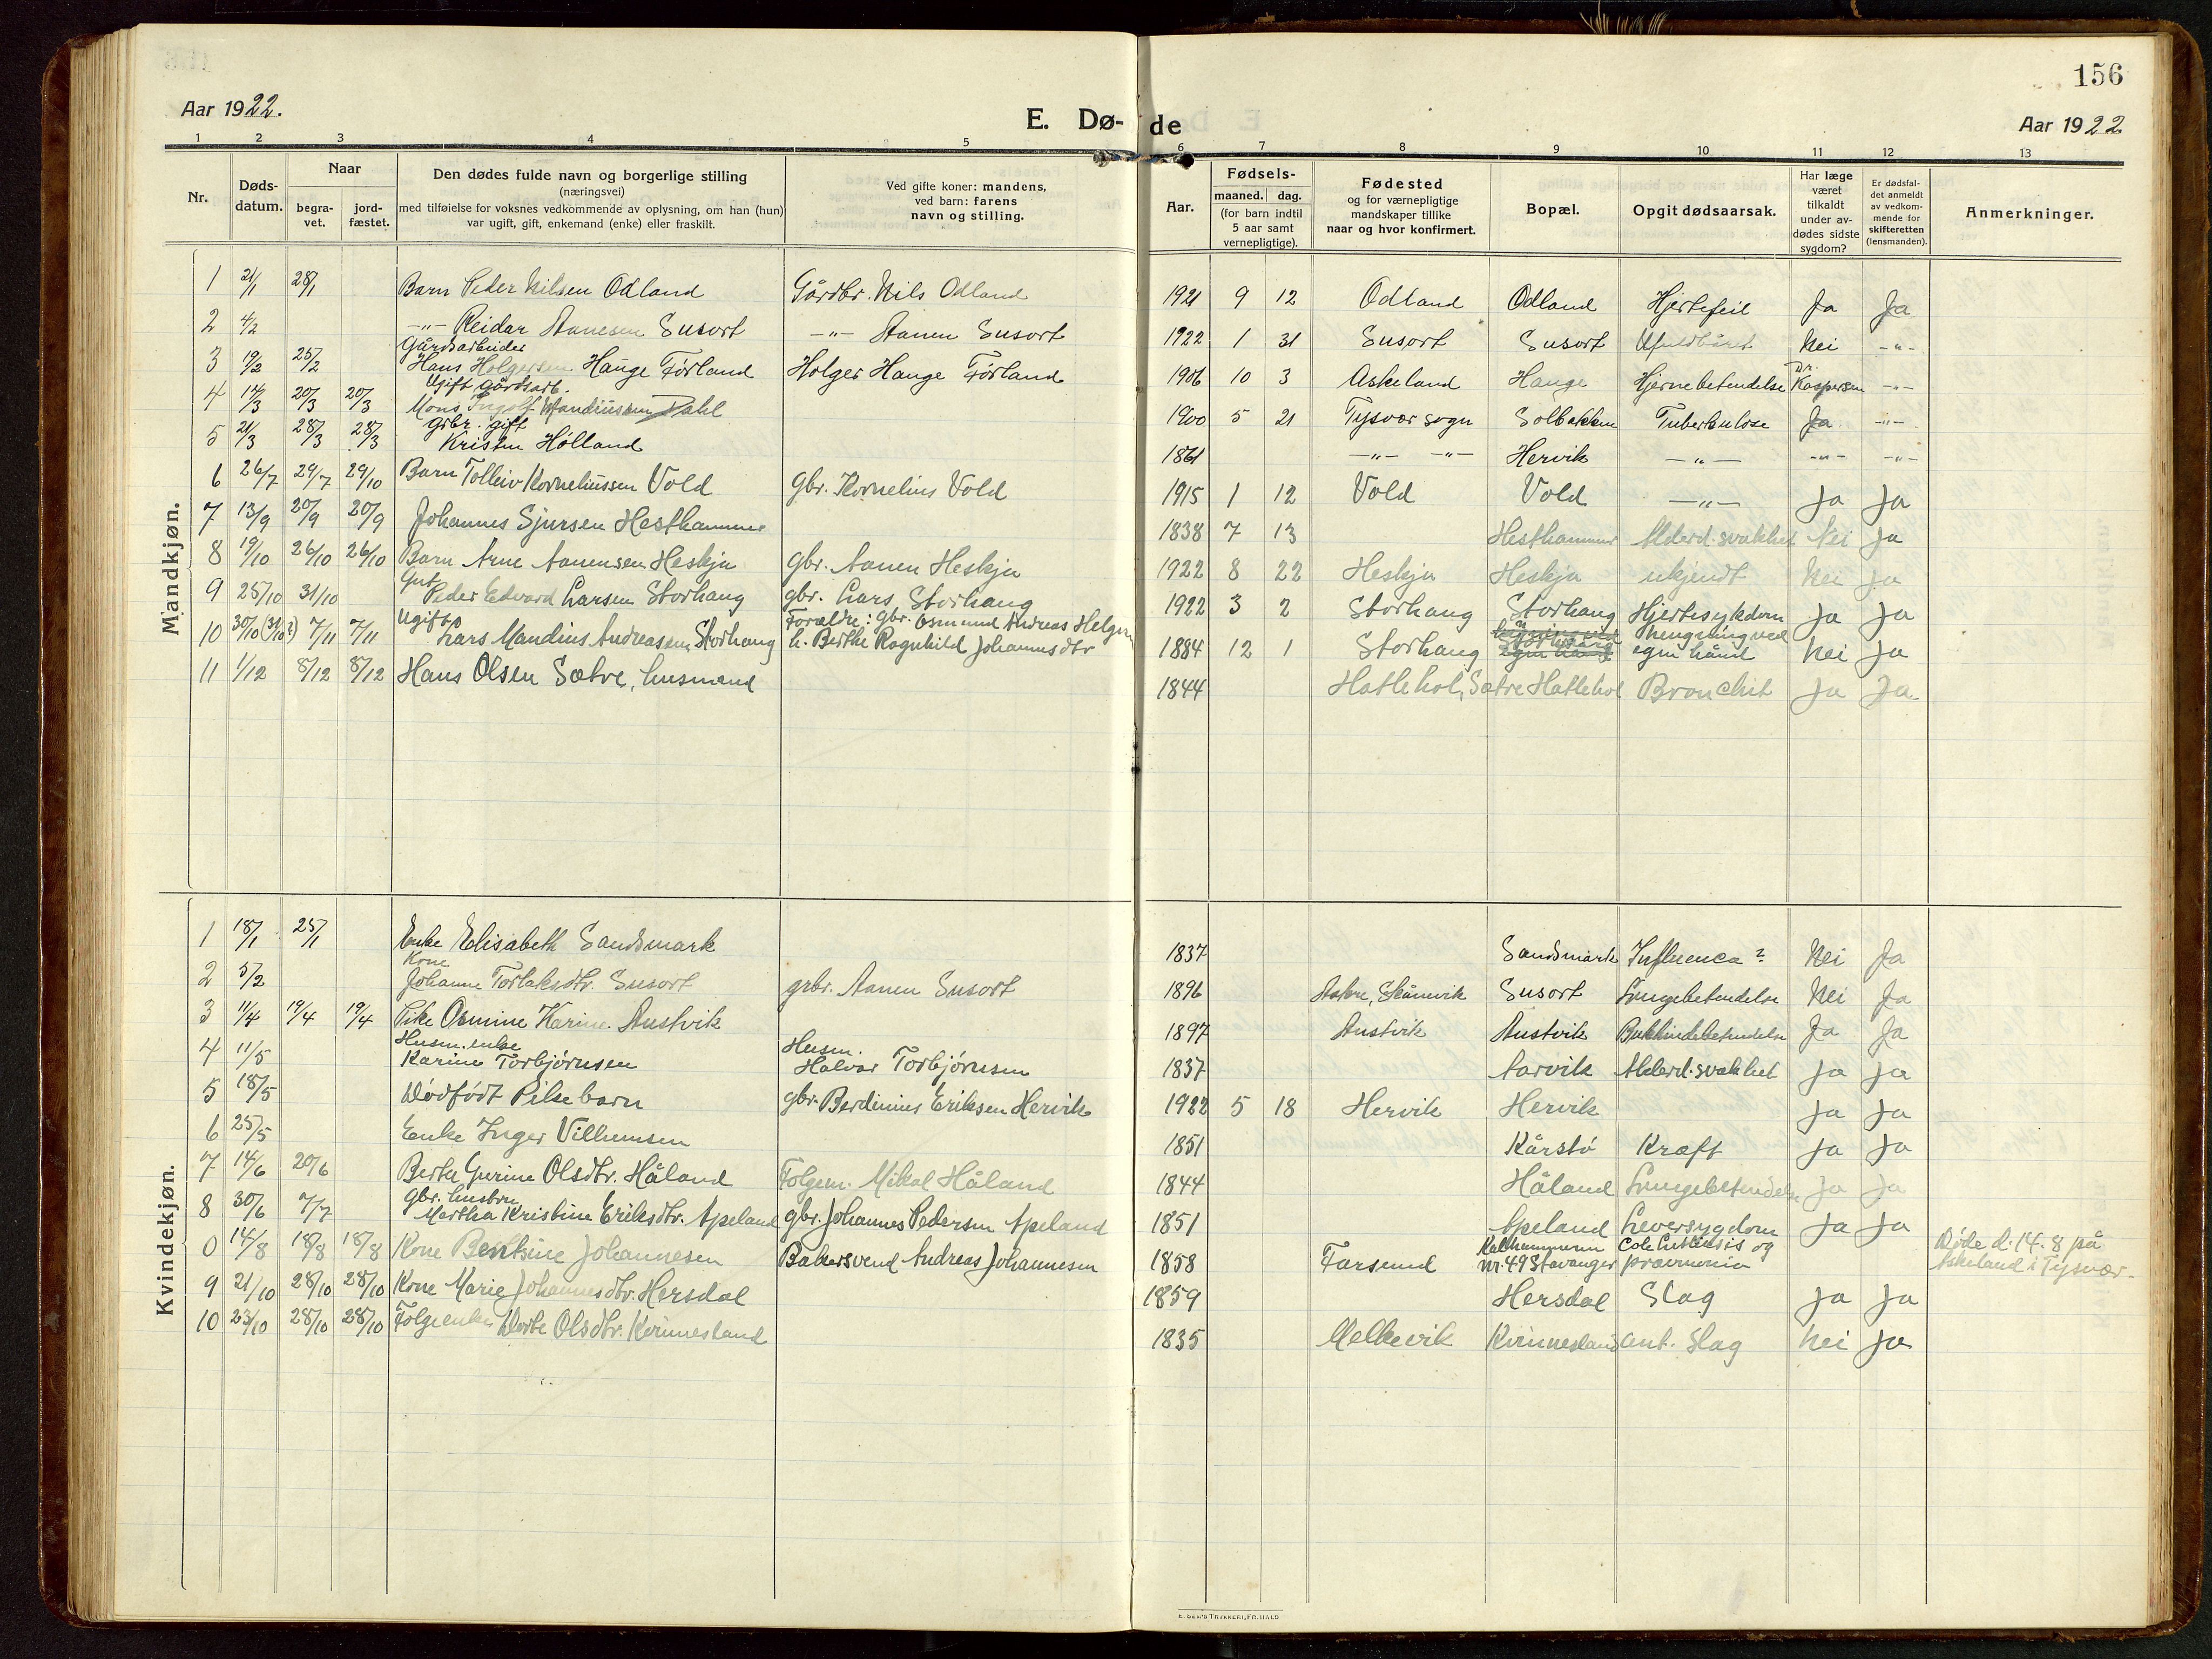 156
Aar 1922.
E. Dø-
de
Aar 1922
1 2 3 4 5 6 7 8 9 10 11 12 13
Nr.
Døds-
datum.
Naar
begra-
vet.
jord-
fæstet.
Den dødes fulde navn og borgerlige stilling
(næringsvei)
med tilføielse for voksnes vedkommende av oplysning, om han (hun)
var ugift, gift, enkemand (enke) eller fraskilt.
Ved gifte koner: mandens,
ved barn: farens
navn og stilling.
Aar.
Fødsels-
maaned. dag.
(for barn indtil
5 aar samt
vernepligtige).
Fødested
og for værnepligtige
mandskaper tillike
naar og hvor konfirmert.
Bopæl.
Opgit dødsaarsak.
Har læge
været
tilkaldt
under av-
dødes sidste
sygdom?
Er dødsfal-
det anmeldt
av vedkom-
mende for
skifteretten
(lensmanden).
Anmerkninger.
Mandkjøn.
1 21/1 28/1 Barn Peder Nilsen Odland Gårdbr. Nils Odland 1921 9 12 Odland Odland Hjertefeil Ja Ja
2 4/2 -"- Reidar Aanesen Susort -"- Aanen Susort 1922 1 31 Susort Susort Nei -"-
Gårdsarbeider
3 19/2 25/2 Hans Holgersen Hauge Førland Holger Hauge Førland 1906 10 3 Askeland Hauge Hjernebetendelse Dr. Kaspersen -"-
Ugift gårdsarb.
4 14/3 20/3 20/3 Mons Ingolf Mandiussen Dahl 1900 5 21 Tysvær sogn Solbakken Tuberkulose Ja -"-
grbr. gift
5 21/3 28/3 28/3 Kristen Hølland 1861 -"- -"- Hervik -"- -"- -"-
6 26/7 29/7 29/10 Barn Tolleiv Korneliussen Vold gbr. Kornelius Vold 1915 1 12 Vold Vold -"- Ja Ja
7 13/9 20/9 20/9 Johannes Sjursen Hesthammer 1838 7 13 Hesthammer Alderd.svakhet Nei Ja
8 19/10 26/10 26/10 Barn Arne Aanensen Heskja gbr. Aanen Heskja 1922 8 22 Heskja Heskja ukjendt Nei Ja
Gut
9 25/10 31/10 Peder Edvard Larsen Storhaug gbr. Lars Storhaug 1922 3 2 Storhaug Storhaug Hjertesykdom Ja Ja
Ugift Forældre: gbr. Osmund Andreas Helgesen hengning ved
10 30/10 (31/10?) 7/11 7/11 Lars Mandius Andreassen Storhaug h. Berthe Ragnhild Johannesdtr 1884 12 1 Storhaug Storhaug egen hånd Nei Ja
11 1/12 8/12 8/12 Hans Olsen Sætre, husmand 1844 Hatlehol, Sætre Hatlehol Bronchit Ja Ja
Kvindekjøn.
1 18/1 25/1 Enke Elisabeth Sandsmark 1837 Sandsmark Influenca? Nei Ja
Kone
2 5/2 Johanne Torlaksdtr. Susort grbr. Aanen Susort 1896 Skånevik Susort Lungebetendelse Nei Ja
3 11/4 19/4 19/4 Pike Osmine Karine Austvik 1897 Austvik Austvik Bukhindebetendelse Ja Ja
Husm.enke Husm.
4 11/5 Karine Torbjørnsen Halvar Torbjørnsen 1837 Aarvik Alderd.svakhet Ja Ja
5 18/5 Dødfødt Pikebarn gbr. Berdinius Eriksen Hervik 1922 5 18 Hervik Hervik Ja Ja
6 25/5 Enke Inger Vilhemsen 1851 Kårstø Kræft Ja Ja
7 14/6 20/6 Berta Gurine Olsdtr. Håland Folgem. Mikal Håland 1844 Håland Lungebetendelse Ja Ja
gbr. hustru
8 30/6 7/7 Martha Kristine Eriksdtr. Apeland gbr. Johannes Pedersen Apeland 1851 Apeland Leversygdom Ja Ja
0 14/8 18/8 18/8 Kone Bentsine Johannesen Bakersvend Andreas Johannesen 1858 Farsund Kalhammeren nr. 49 Stavanger og Døde d. 14.8 på
Askeland i Tysvær.
9 21/10 28/10 28/10 Kone Marie Johannesdtr. Hersdal 1859 Hersdal Slag Ja Ja
10 23/10 28/10 28/10 Folgeenke Dorte Olsdtr. Kvinnesland 1835 Melkevik Kvinnesland ant. Slag Nei Ja